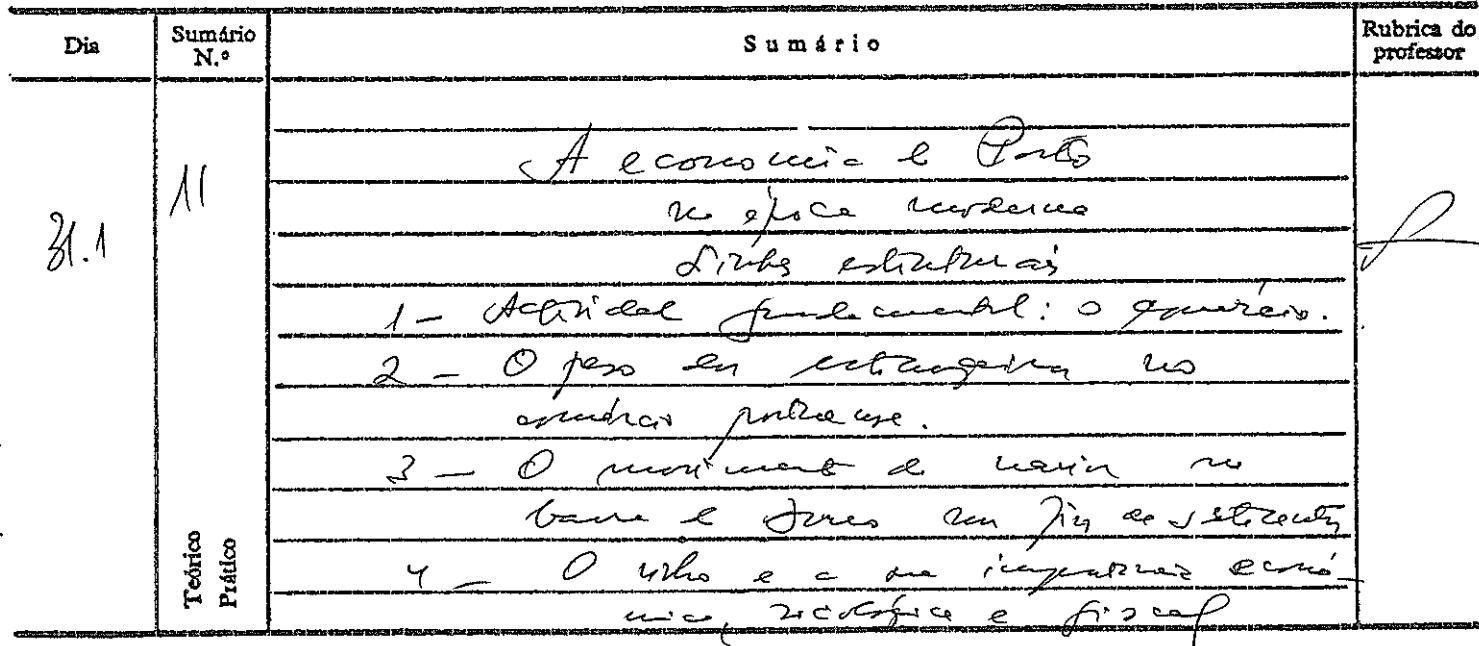 Dia
Sumário N.º
Sumário
Rubrica do professor
31.1
11
Teórico
Prático
A economia do Porto
na época moderna
Linhas estruturais
1 - Actividade fundamental: o comércio.
2 - O peso dos estrangeiros no
comércio portuense.
3 - O movimento de navios na
barra do Douro nos fins de setecentos
4 - O vinho e a sua importância econó-
mica, sociológica e fiscal